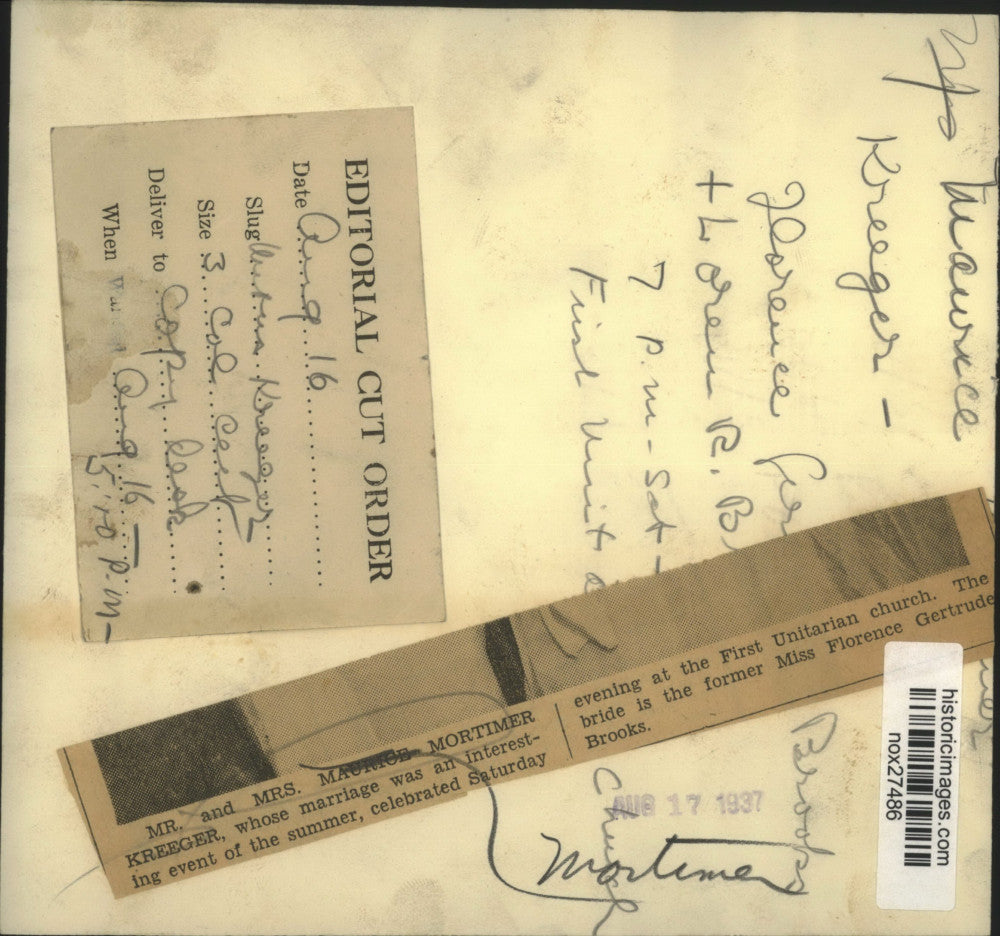 Maurice
Kreeger -
Florence Ger
+ Loren R. B
7 P.m - Sat -
First Unit
Church
Brooks
EDITORIAL CUT ORDER
Date Aug 16
Slug Kreeger
Size 3 Col
Deliver to Copy desk
When Aug 16 -
5:10 P.M -
MR. and MRS. MAURICE MORTIMER
KREEGER, whose marriage was an interest-
ing event of the summer, celebrated Saturday
evening at the First Unitarian church. The
bride is the former Miss Florence Gertrude
Brooks.
AUG 17 1937
Mortimer
historicimages.com
nox27486